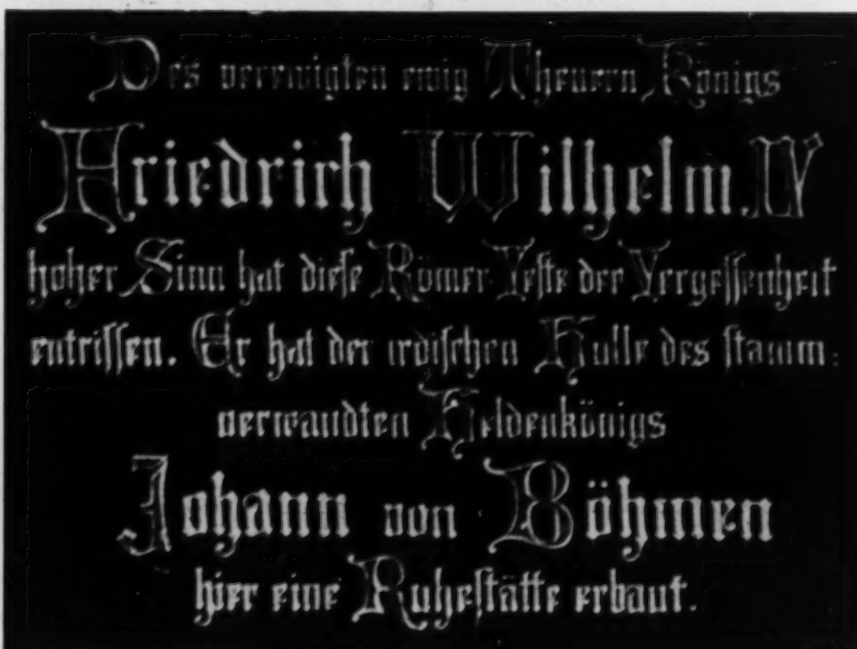 Des verewigten ewig Theuern Königs
Friedrich Wilhelm.IV
hoher Sinn hat diese Römer Veste der Vergessenheit
entrissen. Er hat der irdischen Hulle des stamm:
verwandten Heldenkönigs
Johann von Böhmen
hier eine Ruhestätte erbaut.